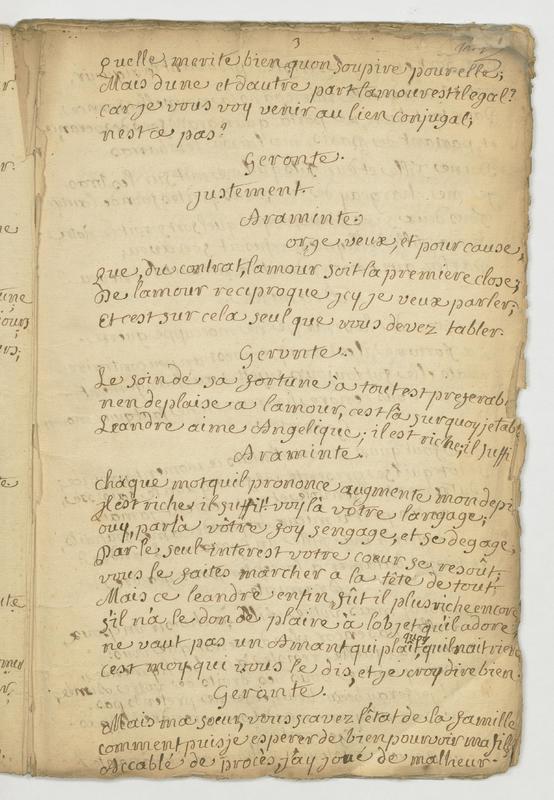 3
quelle merite bien quon soupire pour elle;
Mais dune et dautre part lamour estil egal?
car je vous voy venir au lien conjugal;
nest ce pas?
Geronte.
justement.
Araminte.
or, je veux, et pour cause,
que, du contrat, lamour soit la premiere close;
De lamour reciproque jcy je veux parler;
et cest sur cela seul que vous devez tabler.
Geronte.
Le soin de sa fortune à tout est preferab
nen deplaise a lamour, cest là surquoy je tab
Leandre aime Angelique; il est riche, il suffi
Araminte.
chaque mot quil prononce augmente mon depi
jl est riche, il suffit! voylà vôtre langage;
ouy, par là vôtre foy sengage, et se degage,
Par le seul interest votre coeur se resoût,
vous le faites marcher a la tête de tout.
Mais ce leandre enfin, fût il plus riche encore
s'il n'a le don de plaire à lobjet qu'il adore,
ne vaut pas un Amant qui plaît, quoy quil nait rien
cest moy qui vous le dis, et je croy dire bien.
Geronte.
Mais ma soeur, vous scavez l'état de la famille
comment puis je esperer de bien pourvoir ma fil
Accablé de procès, j'ay joué de malheur.